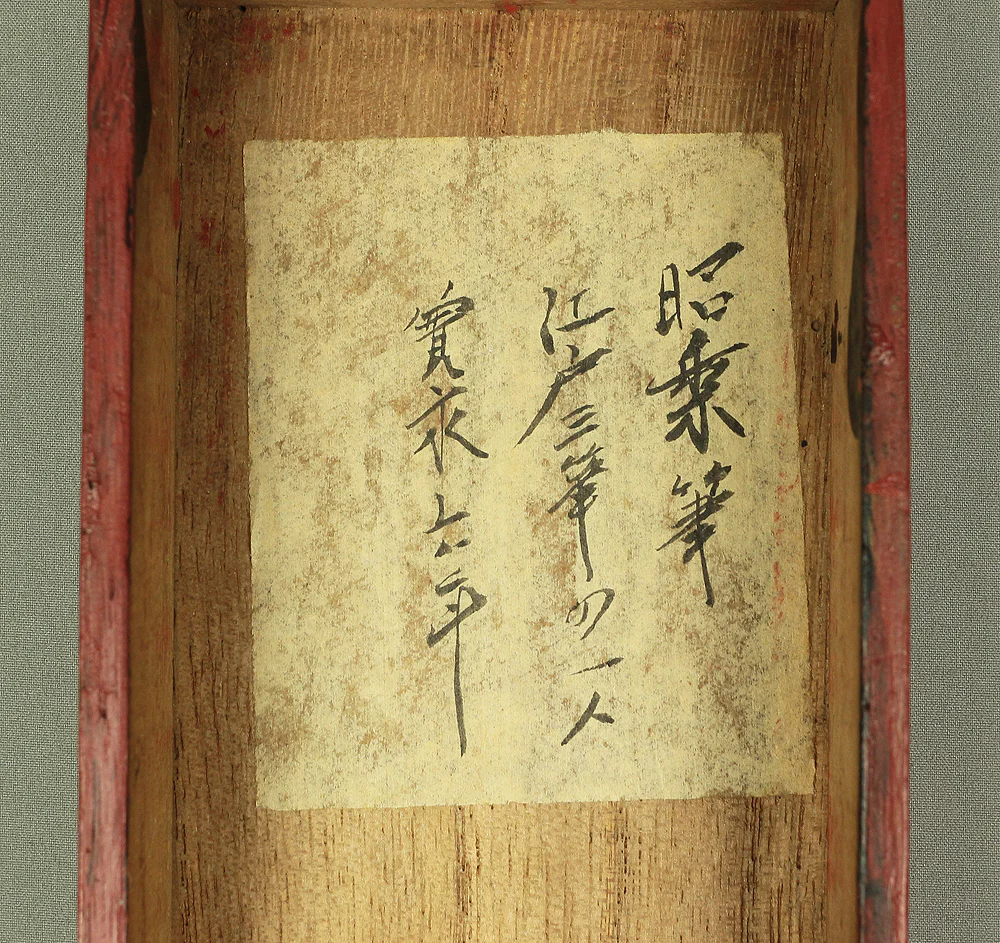 昭乗筆
江戸三筆の一人
寛永六年